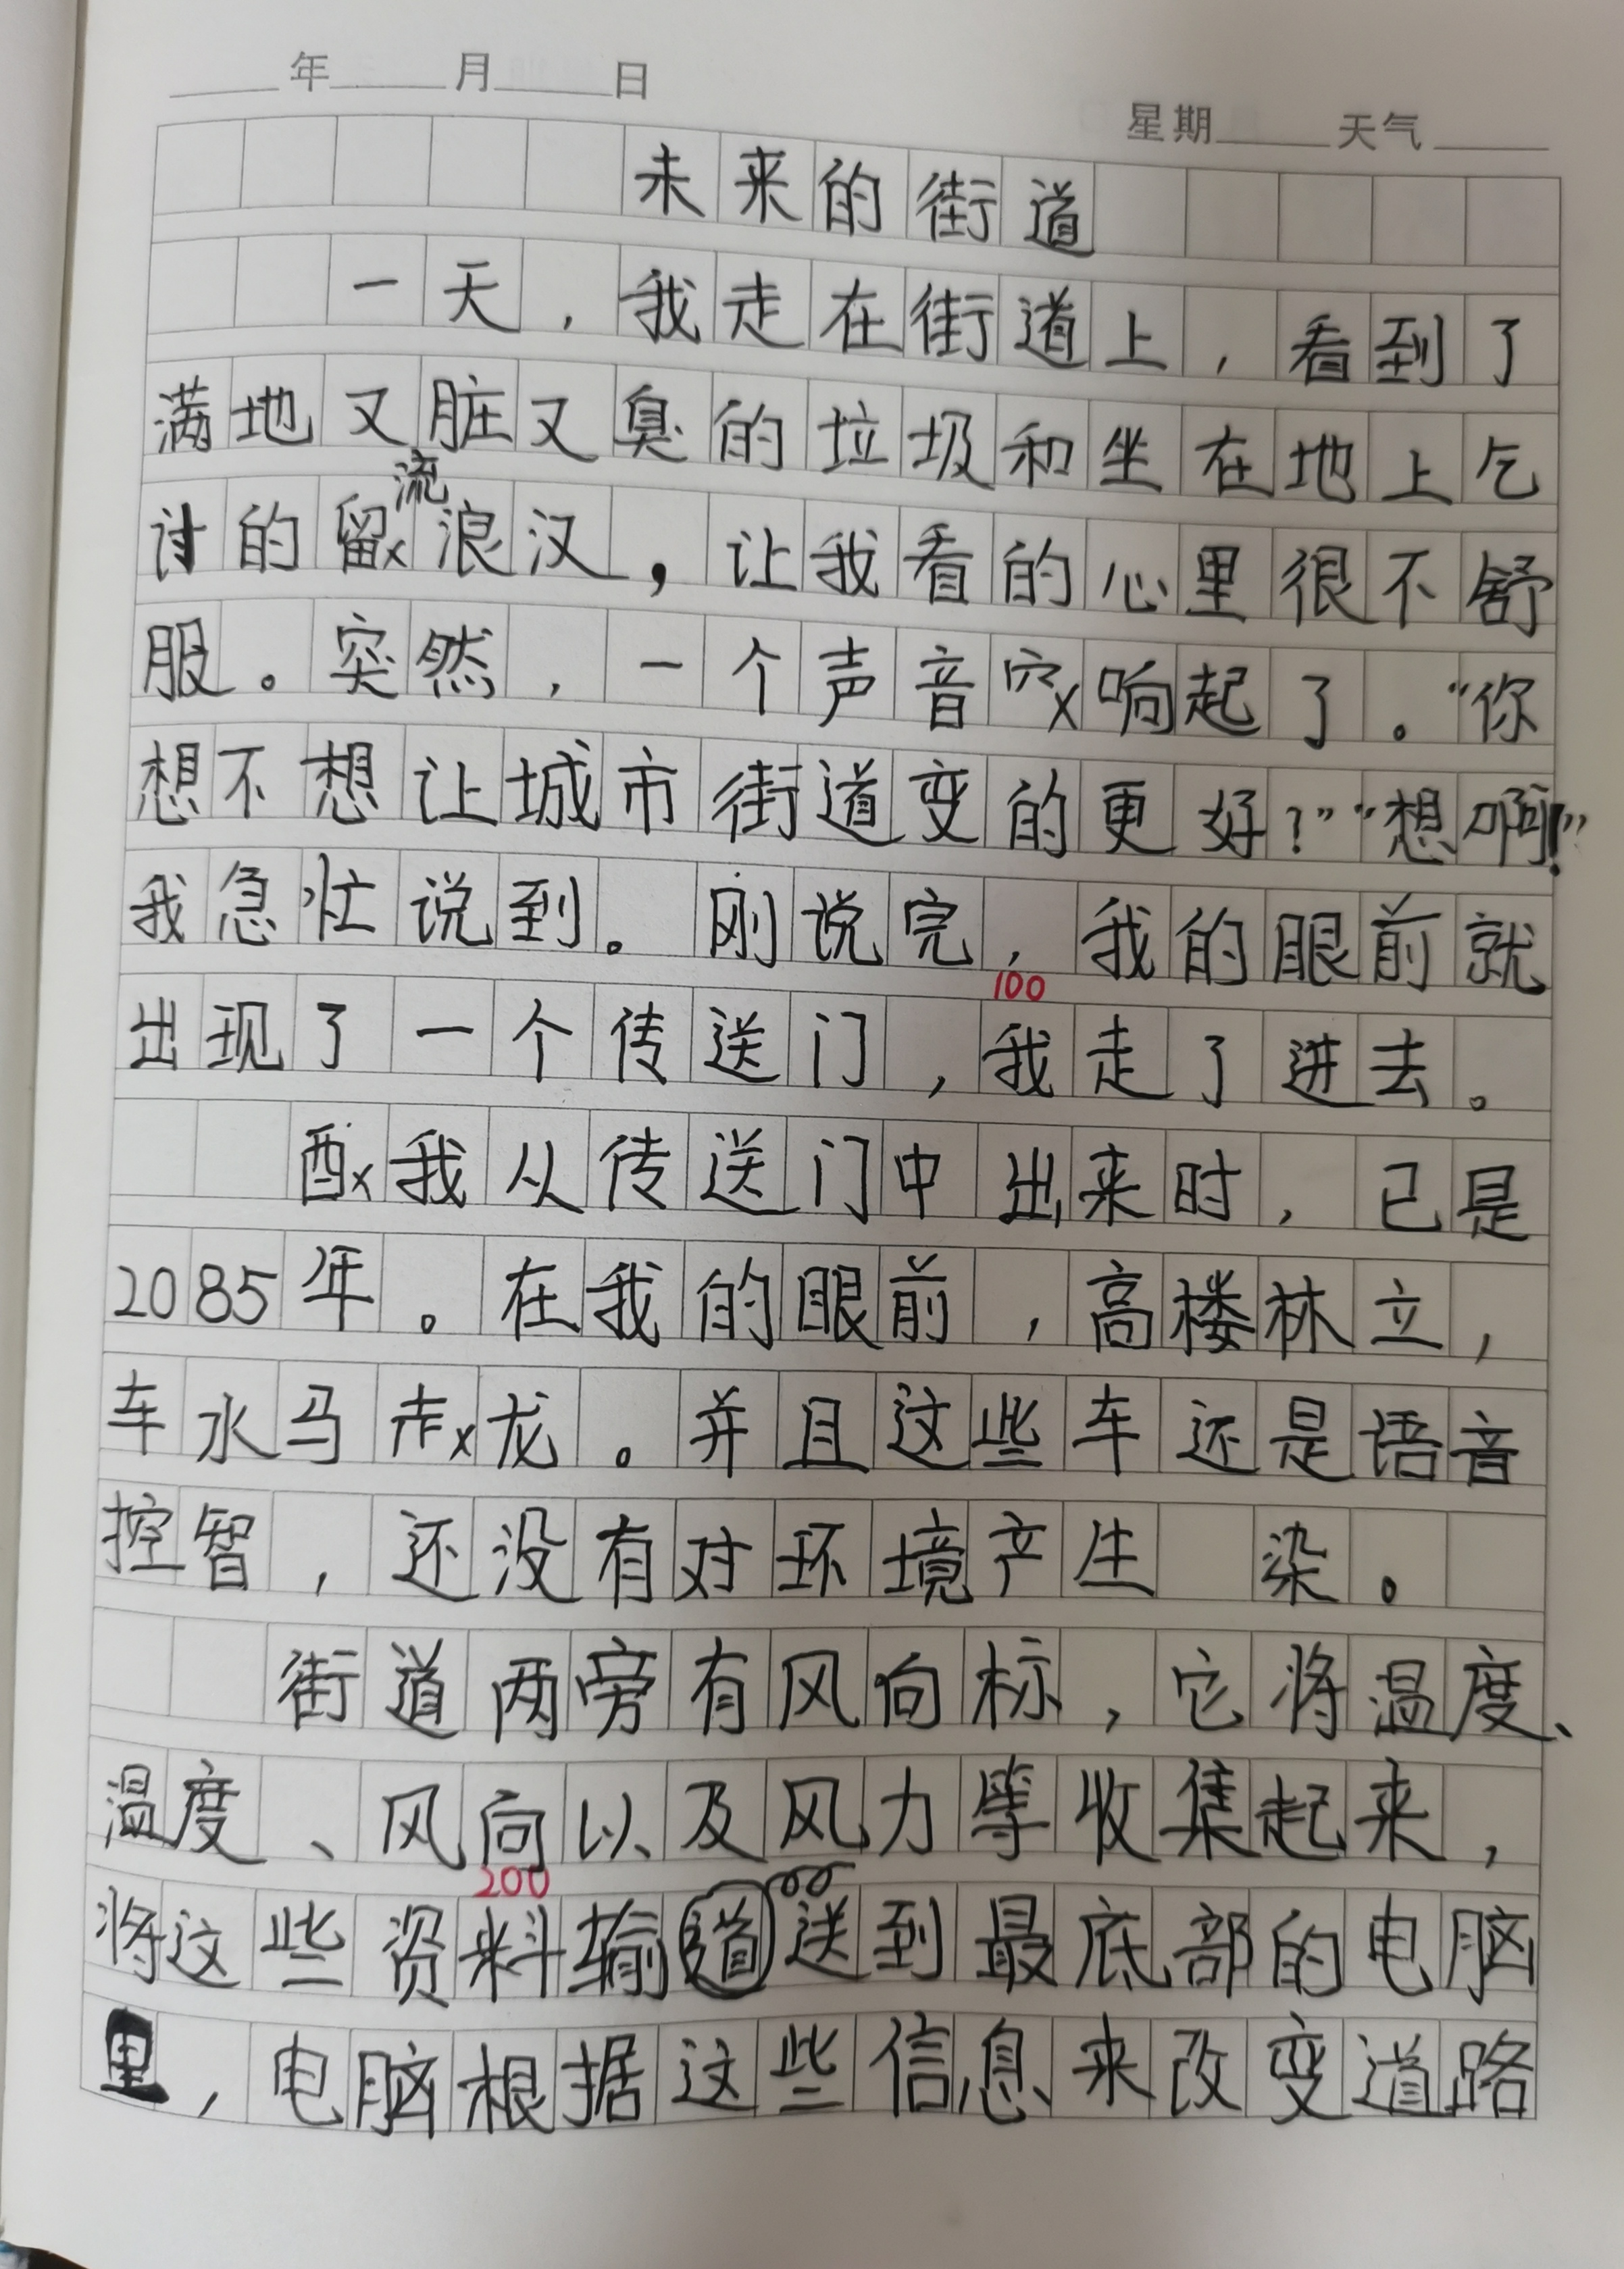 年 月 日
星期 天气
未来的街道
一天，我走在街道上，看到了
满地又脏又臭的垃圾和坐在地上乞
讨的流浪汉，让我看的心里很不舒
服。突然，一个声音响起了。“你
想不想让城市街道变的更好？”“想啊！”
我急忙说到。刚说完，我的眼前就
100
出现了一个传送门，我走了进去。
我从传送门中出来时，已是
2085年。在我的眼前，高楼林立，
车水马龙。并且这些车还是语音
控智，还没有对环境产生 染。
街道两旁有风向标，它将温度、
温度、风向以及风力等收集起来，
200
将这些资料输送到最底部的电脑
里，电脑根据这些信息来改变道路